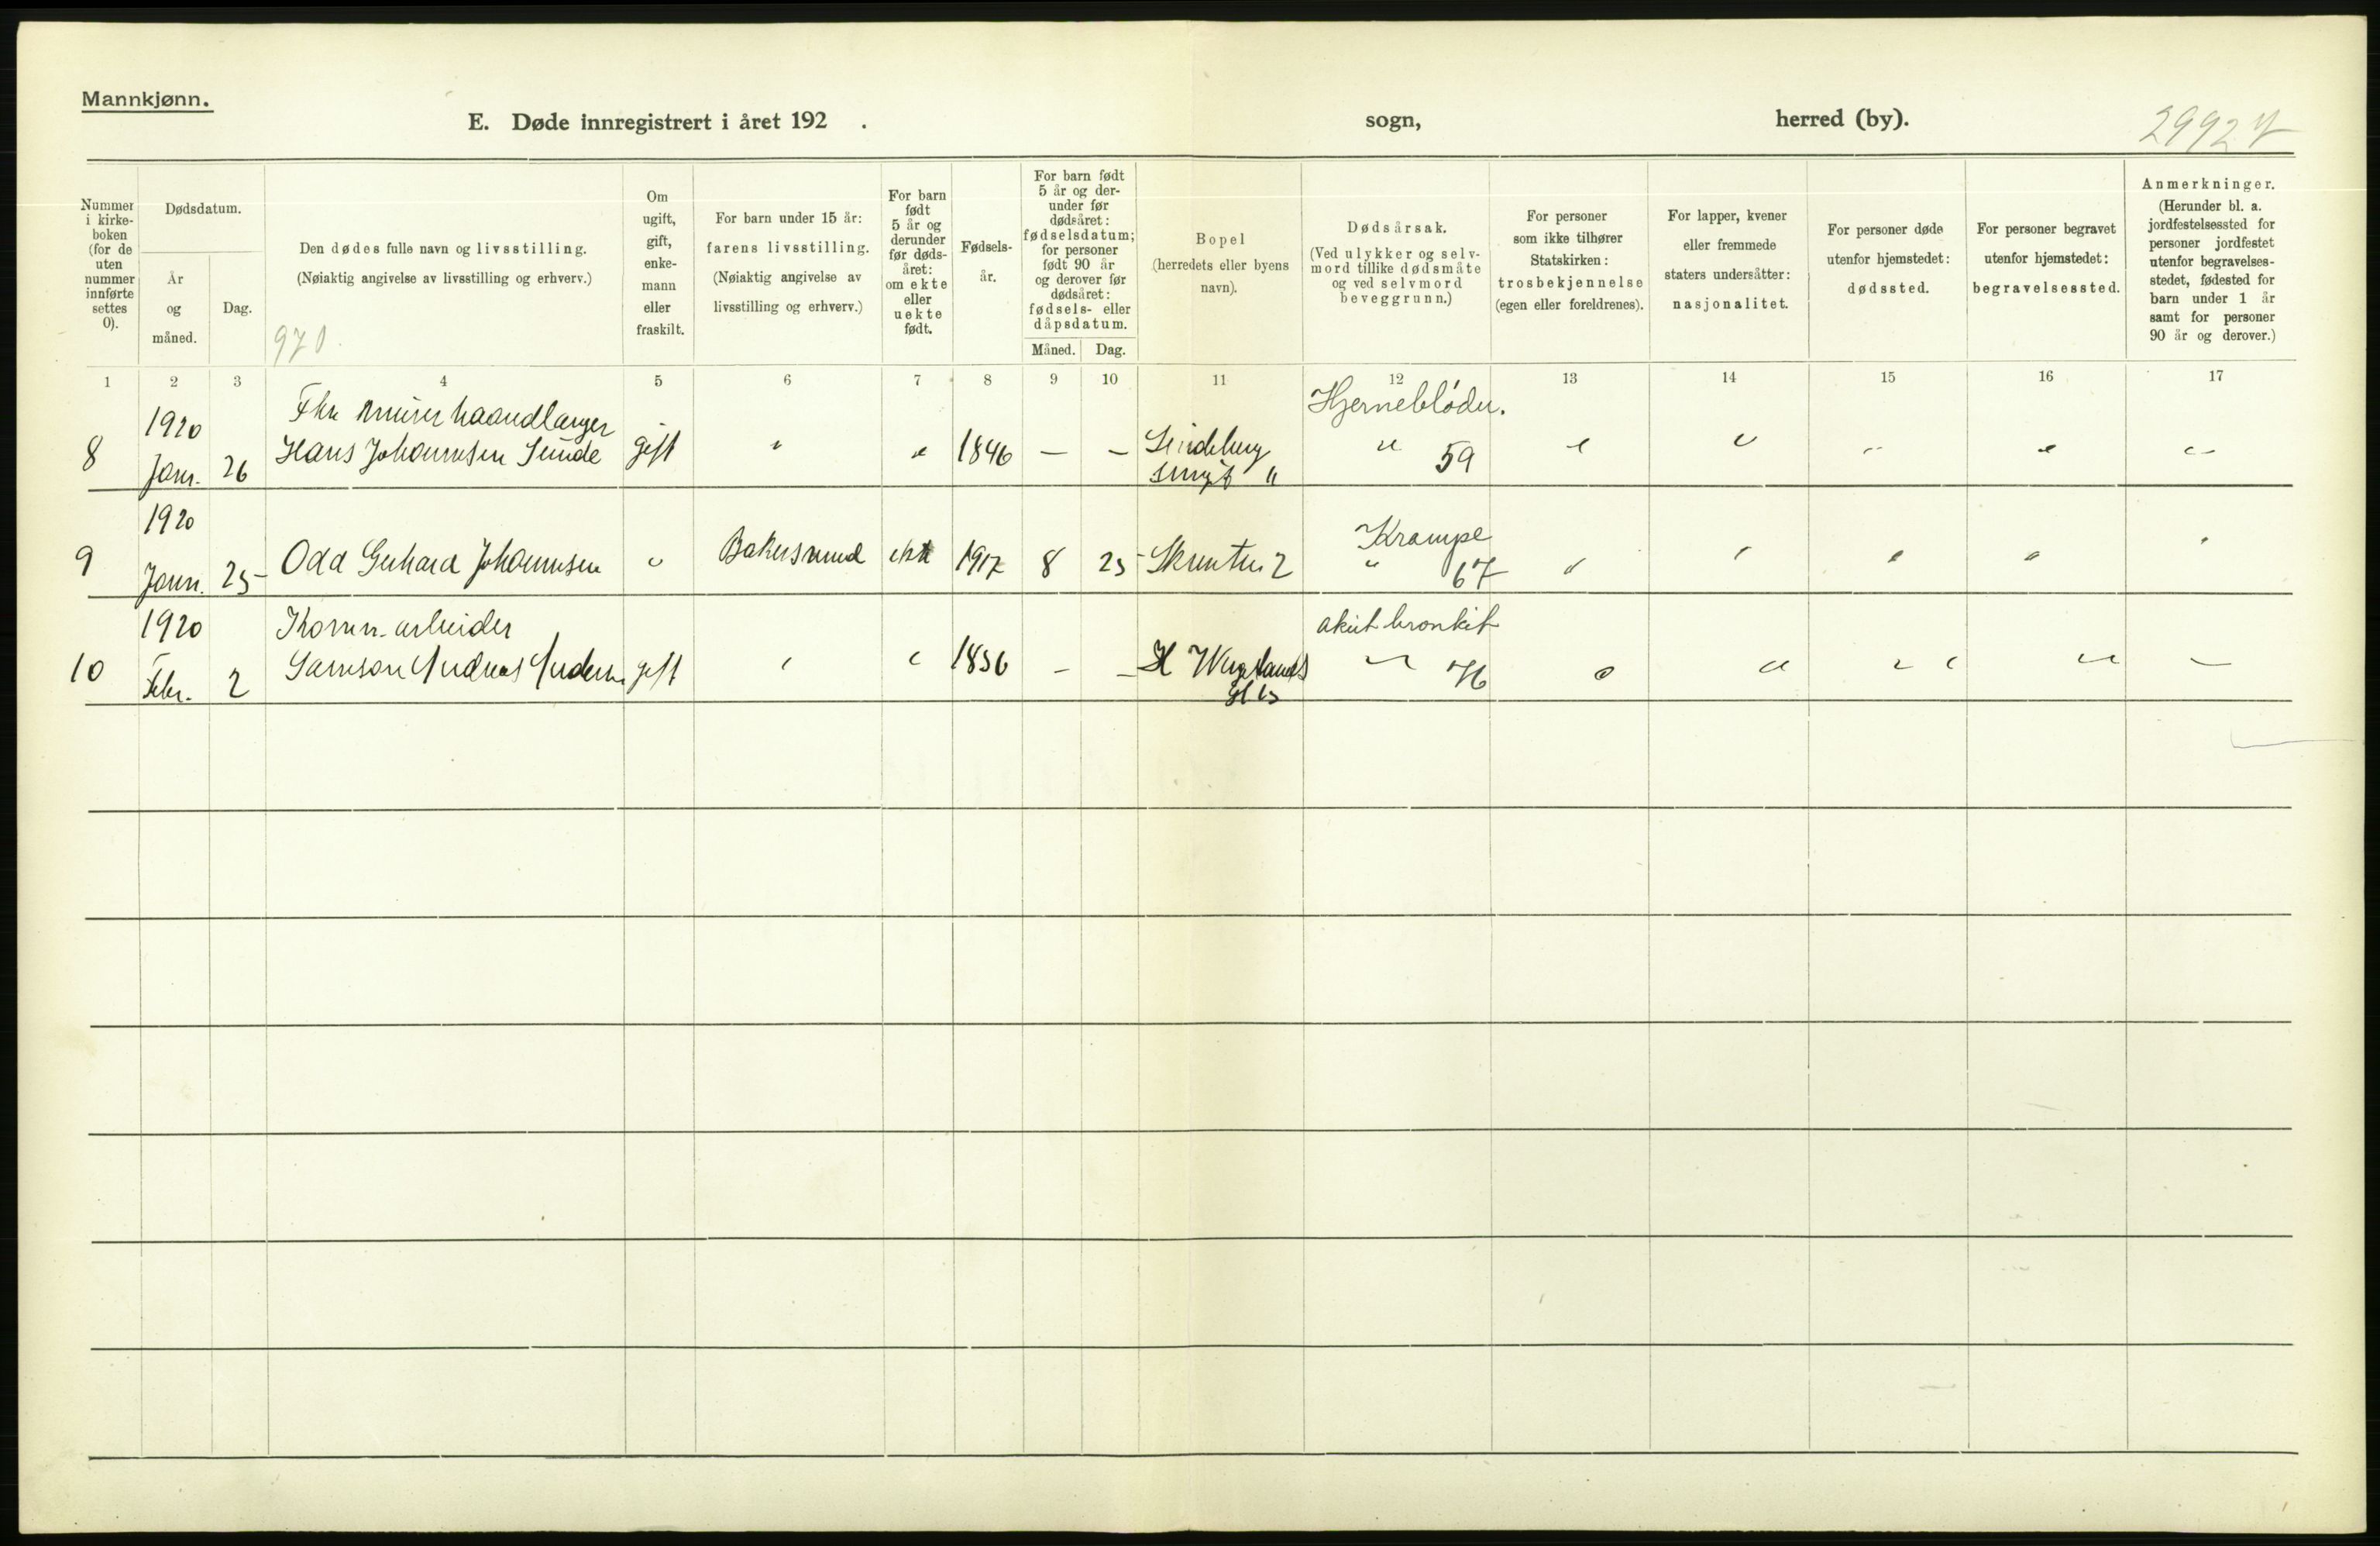 Mannkjønn.
E. Døde innregistrert i året 192 .
sogn,
herred (by).
2992
Nummer i kirke-boken (for de uten nummer innførte settes 0).
Dødsdatum.
År og måned.
Dag.
Den dødes fulle navn og livsstilling.
(Nøiaktig angivelse av livsstilling og erhverv.)
970.
Om ugift, gift, enke-mann eller fraskilt.
For barn under 15 år:
farens livsstilling.
(Nøiaktig angivelse av livsstilling og erhverv.)
For barn født 5 år og derunder før døds-året: om ekte eller uekte født.
Fødsels-år.
For barn født 5 år og der-under før dødsåret: fødselsdatum; for personer født 90 år og derover før dødsåret: fødsels- eller dåpsdatum.
Måned.
Dag.
Bopel
(herredets eller byens navn).
Dødsårsak.
(Ved ulykker og selv-mord tillike dødsmåte og ved selvmord beveggrunn.)
For personer som ikke tilhører Statskirken:
trosbekjennelse
(egen eller foreldrenes).
For lapper, kvener eller fremmede staters undersåtter:
nasjonalitet.
For personer døde utenfor hjemstedet:
dødssted.
For personer begravet utenfor hjemstedet:
begravelsessted.
Anmerkninger.
(Herunder bl. a. jordfestelsessted for personer jordfestet utenfor begravelses-stedet, fødested for barn under 1 år samt for personer 90 år og derover.)
1 2 3 4 5 6 7 8 9 10 11 12 13 14 15 16 17
1920 murer haandlanger Hjernebløder.
8 Janr. 26 Hans Johannesen Sunde gift " " 1846 — — Lindeberg " 59 " " " " "
"
1920 Krampe
9 Janr. 25 Odd Gerhard Johannesen " Bakersvend ekte 1917 8 25 2 " 67 " " " " "
1920 Komm. arbeider akut bronkit
10 Febr. 2 Samson Andreas gift " " 1836 — — H Wergelands " " " " " —